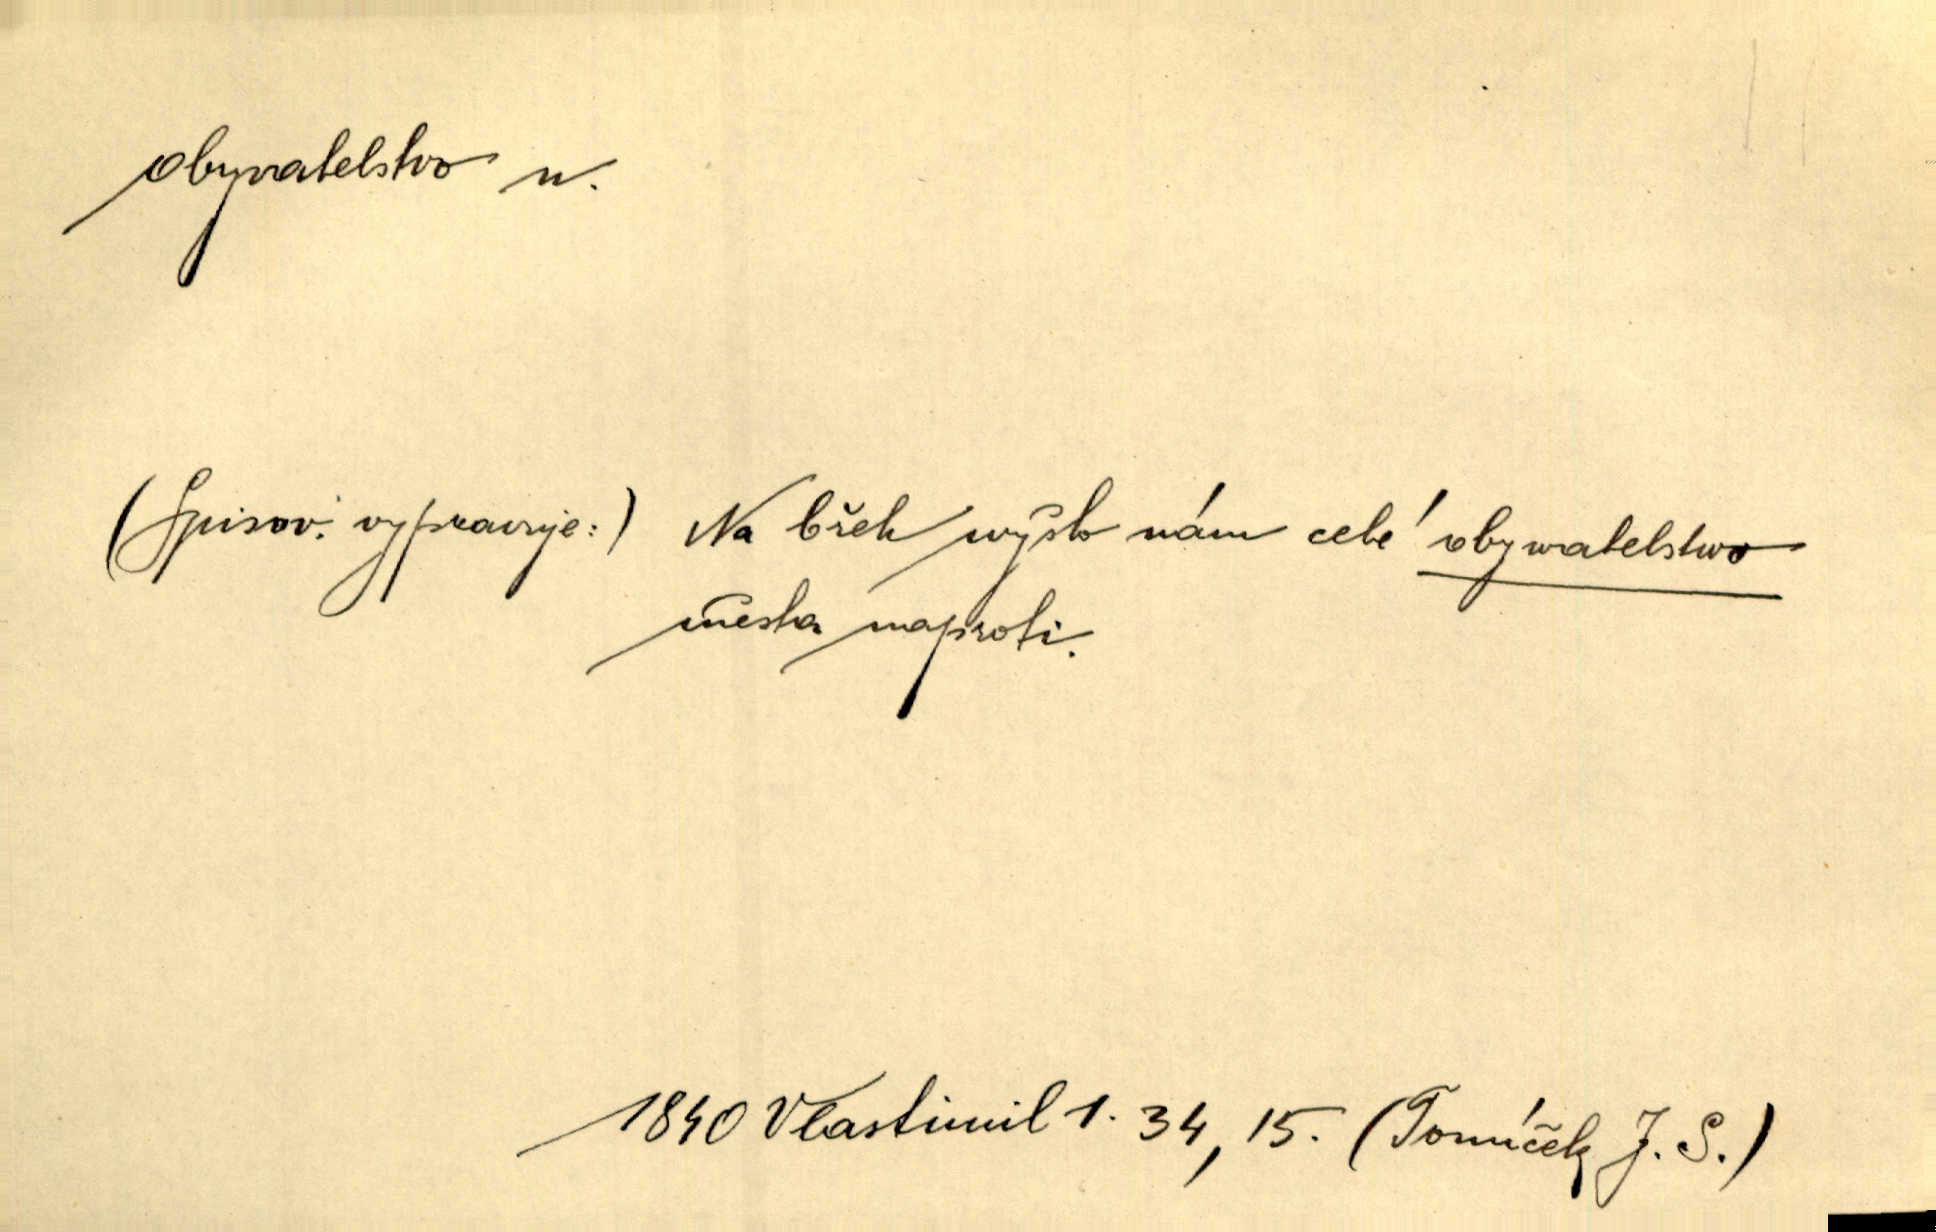 obyvatelstvo n.
(Spisov. vypravuje:) Na břeh wyšlo nám celé obywatelstwo
města naproti.
1840 Vlastimil 1. 34, 15. (Tomíček J. S.)